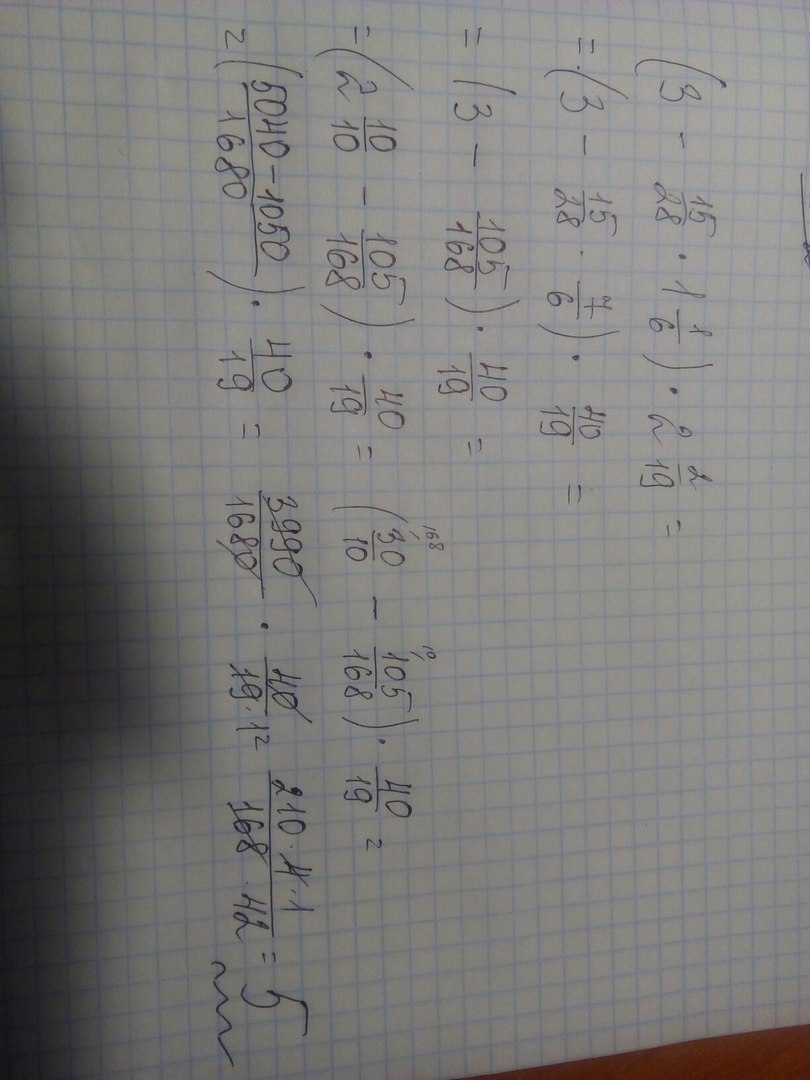 (3 - 15/28 · 1 1/6) · 2 2/19 =
= (3 - 15/28 · 7/6) · 40/19 =
= (3 - 105/168) · 40/19 =
= (2 10/10 - 105/168) · 40/19 = (30/10 - 105/168) · 40/19 =
= (5040-1050/1680) · 40/19 = 3990/1680 · 40/19·1 = 210·4·1/168 42 = 5